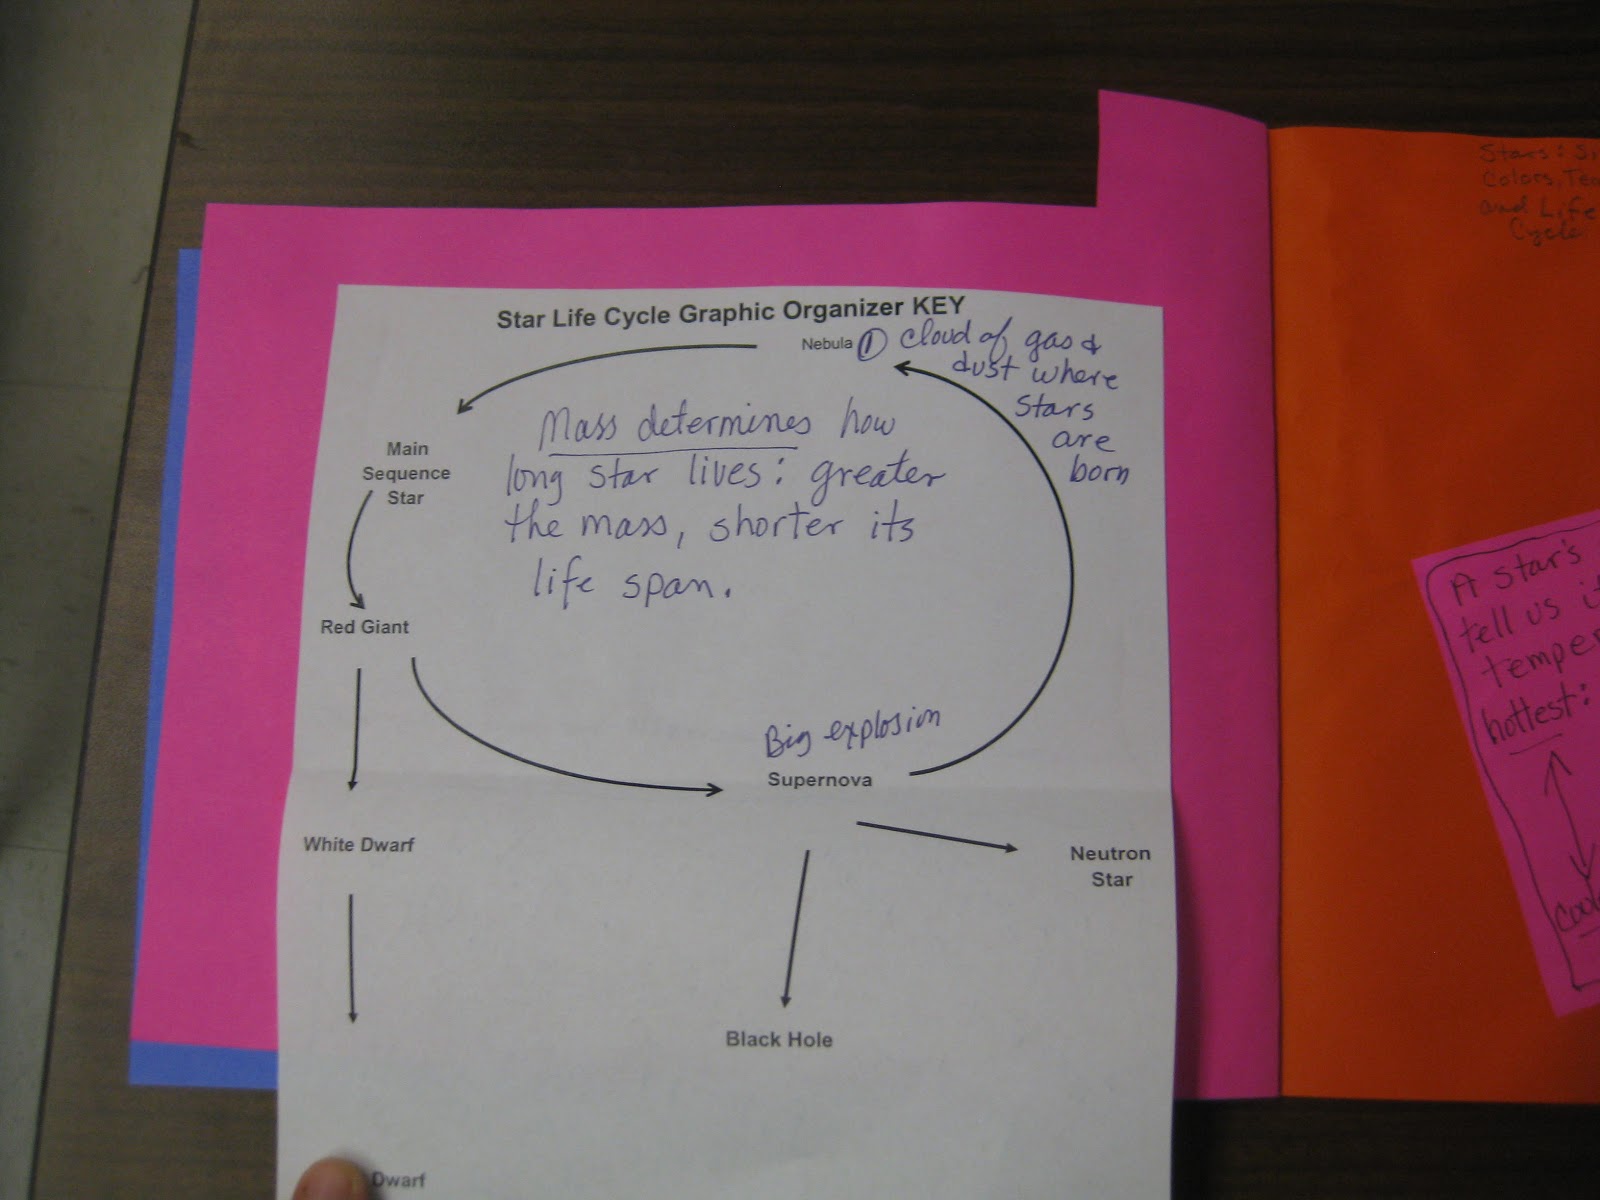 Star Life Cycle Graphic Organizer KEY
Nebula ① Cloud of gas &
dust where
stars
are
born
Mass determines how
long star lives: greater
the mass, shorter its
life span.
Main
Sequence
Star
Red Giant
Big explosion
Supernova
White Dwarf
Neutron
Star
Black Hole
Dwarf
Stars:
Colors,
and Life
Cycle
A star's
tell us
hottest: